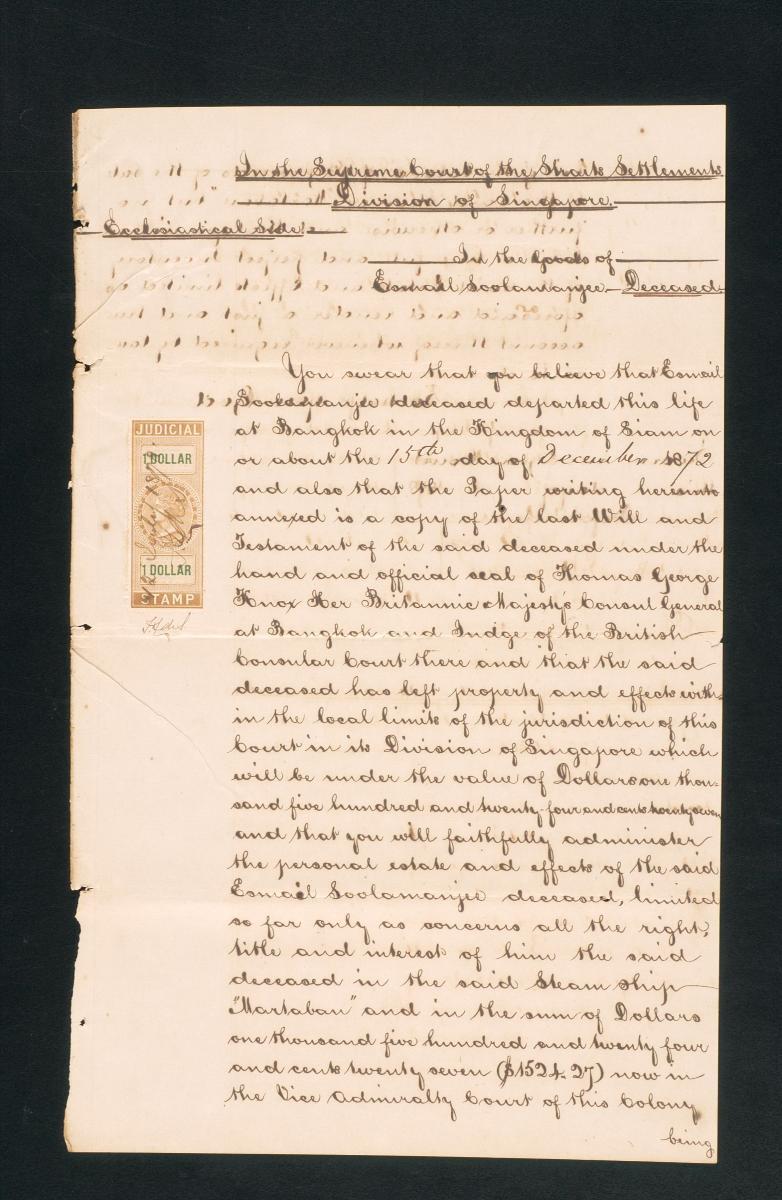 In the Supreme Court of the Straits Settlements
Division of Singapore.
Ecclesiastical Side.
In the Goods of
Esmail Soolamanjee Deceased.
You swear that you believe that Esmail
Soolamanjee deceased departed this life
at Bangkok in the Kingdom of Siam on
or about the 15th day of December 1872
and also that the Paper writing hereunto
annexed is a copy of the last Will and
Testament of the said deceased under the
hand and official seal of Thomas George
Knox Her Britannic Majesty's Consul General
at Bangkok and Judge of the British
Consular Court there and that the said
deceased has left property and effects with-
in the local limits of the jurisdiction of this
Court in its Division of Singapore which
will be under the value of Dollars one thou-
sand five hundred and twenty four and cents twenty seven
and that you will faithfully administer
the personal estate and effects of the said
Esmail Soolamanjee deceased, limited
so far only as concerns all the right,
title and interest of him the said
deceased in the said Steam ship
"Martaban" and in the sum of Dollars
one thousand five hundred and twenty four
and cents twenty seven ($1524.27) now in
the Vice Admiralty Court of this Colony
being
JUDICIAL
1 DOLLAR
1 DOLLAR
STAMP